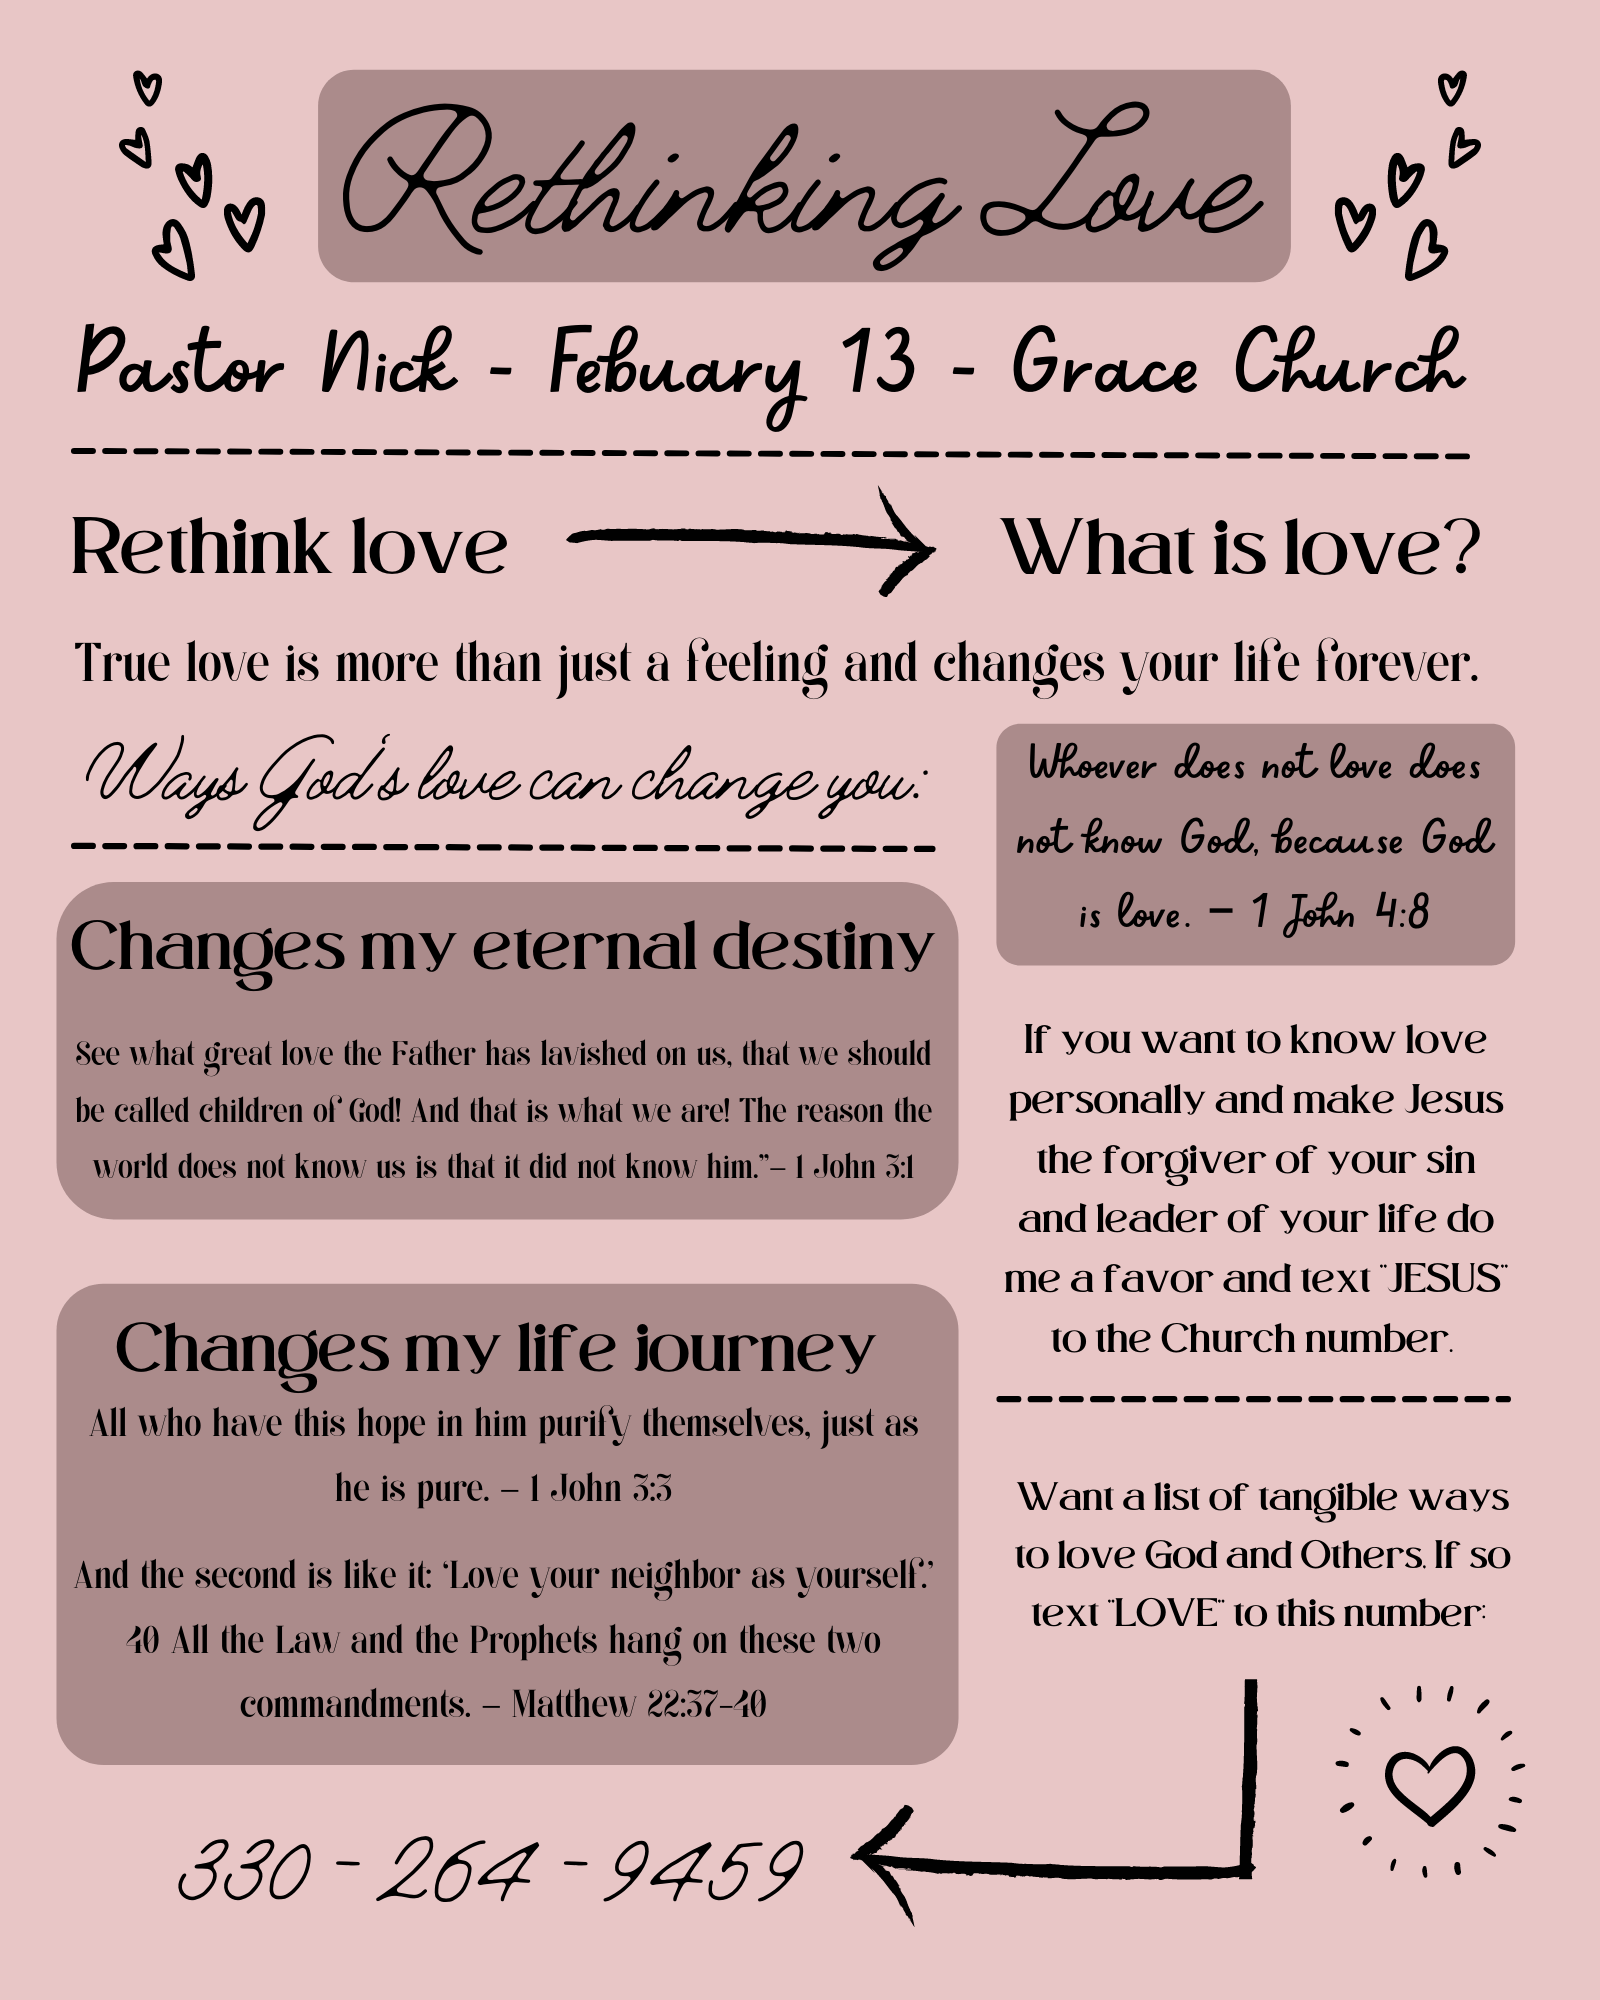 Rethinking Love
Pastor Nick - Febuary 13 - Grace Church
Rethink love
What is love?
True love is more than just a feeling and changes your life forever.
Ways God's love can change you:
Changes my eternal destiny
See what great love the Father has lavished on us, that we should
be called children of God! And that is what we are! The reason the
world does not know us is that it did not know him.”– 1 John 3:1
Changes my life journey
All who have this hope in him purify themselves, just as
he is pure. – 1 John 3:3
And the second is like it: ‘Love your neighbor as yourself.’
40 All the Law and the Prophets hang on these two
commandments. – Matthew 22:37-40
Whoever does not love does
not know God, because God
is love. – 1 John 4:8
If you want to know love
personally and make Jesus
the forgiver of your sin
and leader of your life do
me a favor and text "JESUS"
to the Church number.
Want a list of tangible ways
to love God and Others. If so
text "LOVE" to this number:
330 - 264 - 9459